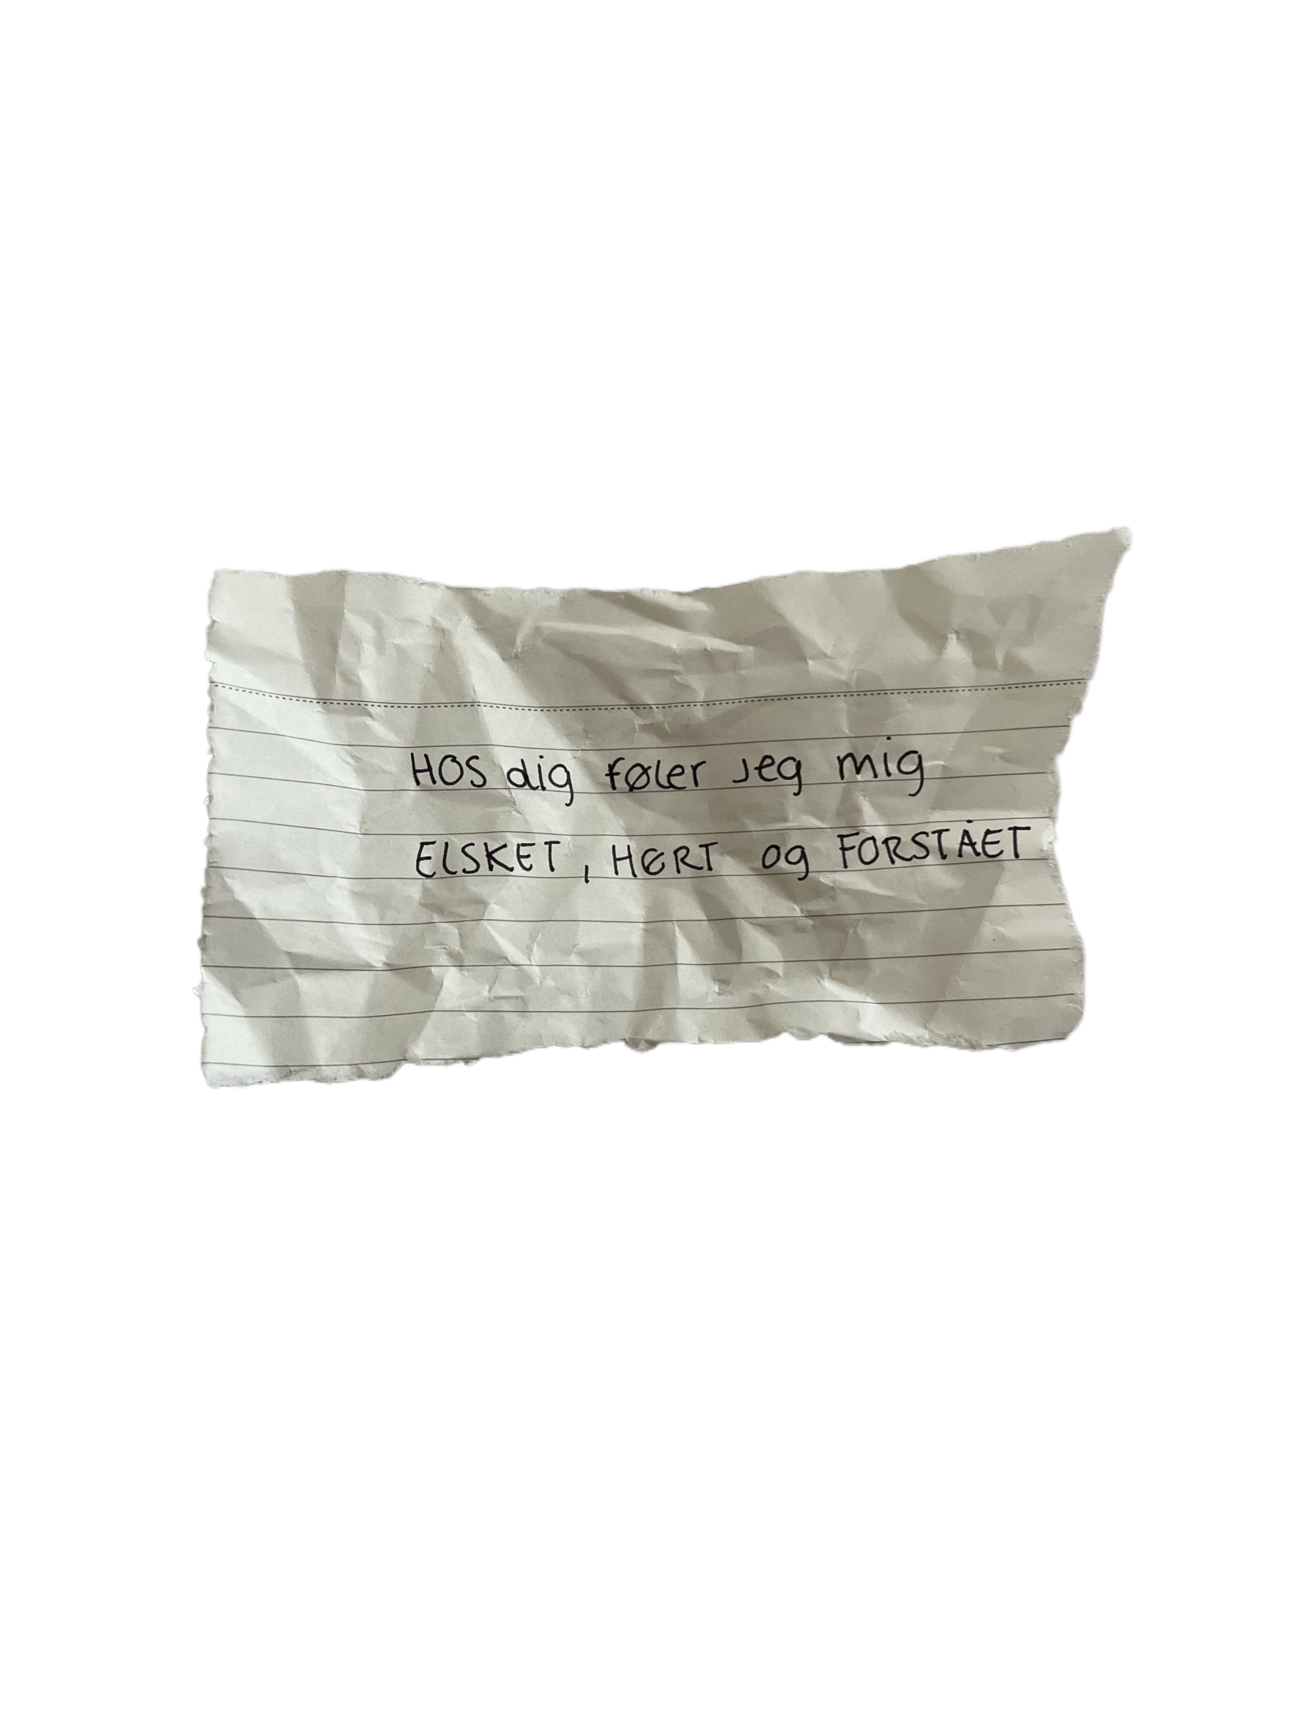 HOS dig føler jeg mig
ELSKET, HØRT og FORSTÅET